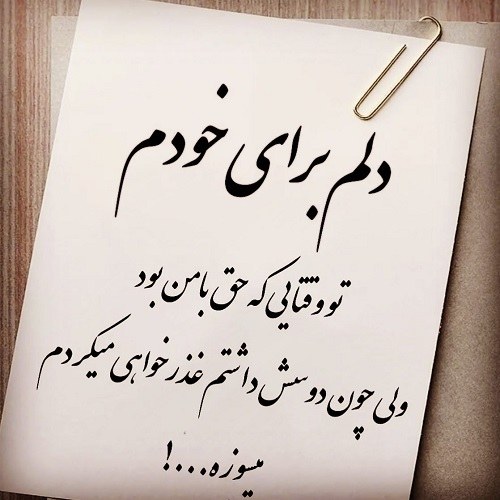 دلم برای خودم
تو وقتایی که حق با من بود
ولی چون دوسش داشتم غذرخواهی میکردم
میسوزه...!